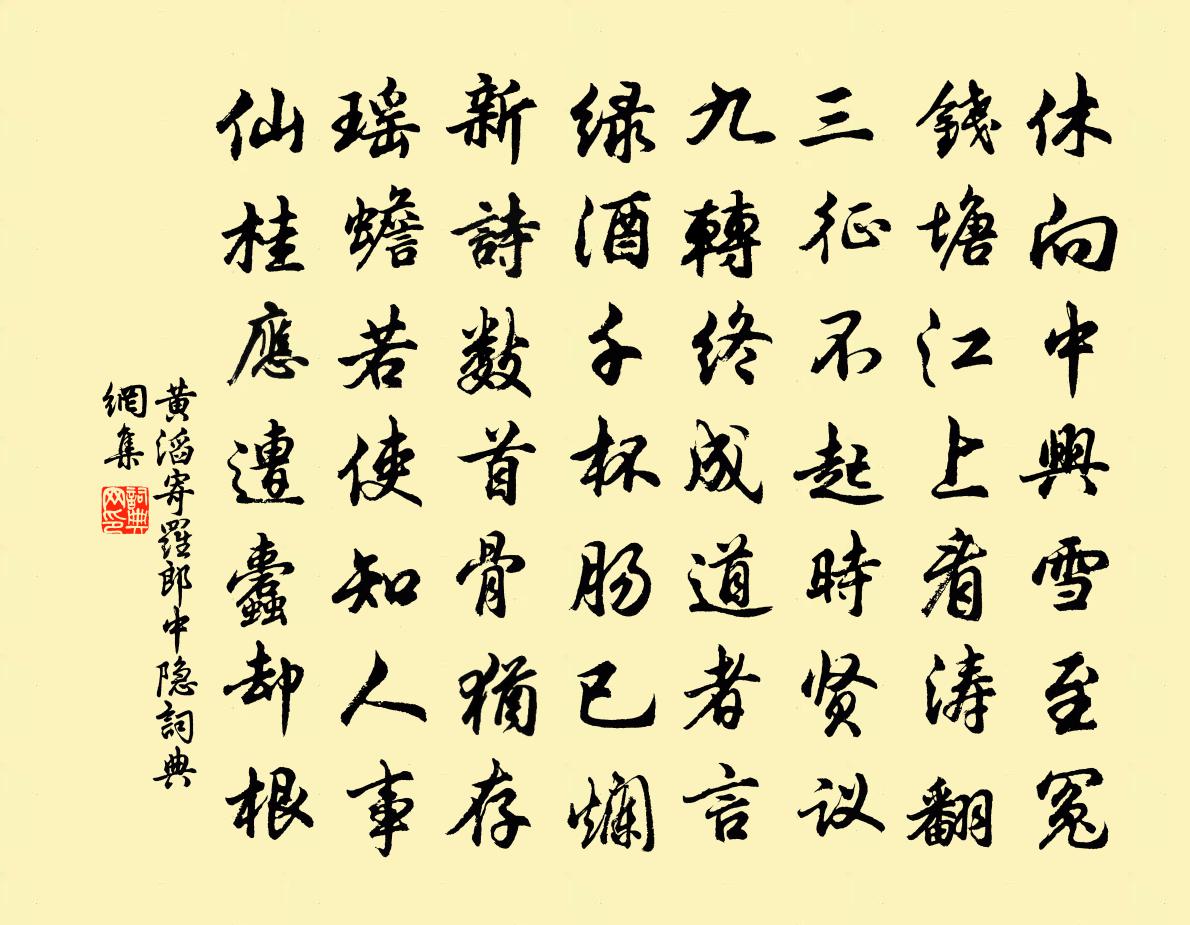 休向中興雪至冤
錢塘江上看涛翻
三征不起時贤议
九轉终成道者言
绿酒千杯肠已爛
新詩数首骨猶存
瑶蟾若使知人事
仙桂應遭蠹却根
黄滔寄羅郎中隐詞典
網集
詞典
网印